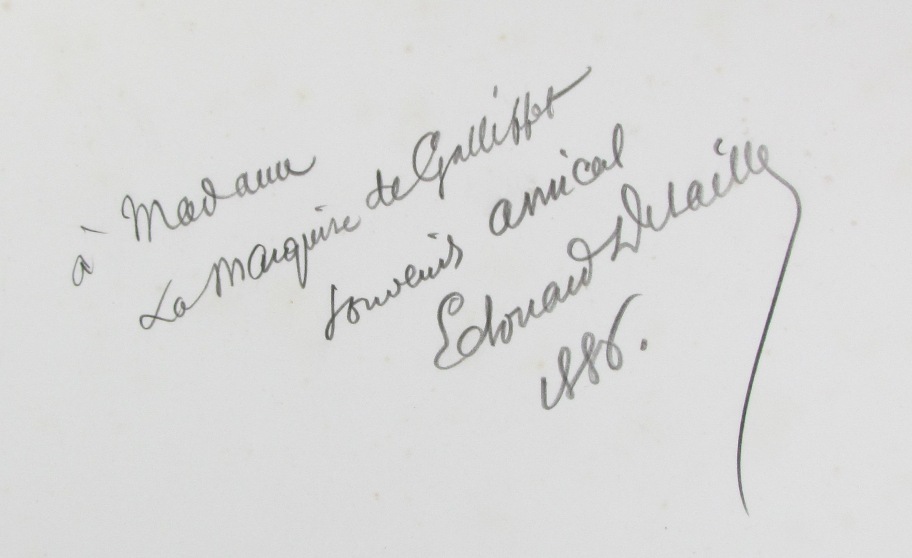 à Madame
La Marquise de Galliffet
souvenir amical
Edouard Detaille
1886.